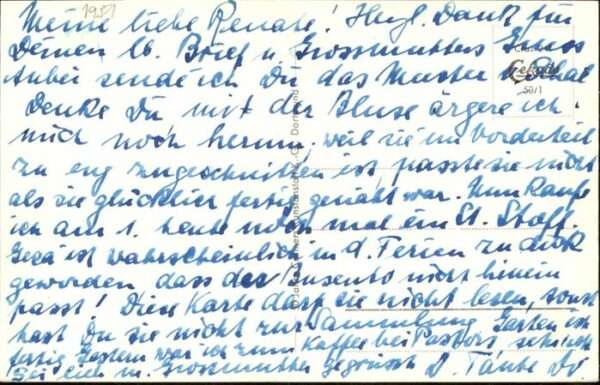 1951
Meine liebe Renate! Herzl. Dank für
Deinen lb. Brief u. Grossmutters Gruss
Anbei sende ich Dir das Muster v. Shal
Denke Dir mit der Bluse ärgere ich
mich noch herum. weil sie im Vorderteil
zu eng zugeschnitten ist passte sie nicht
als sie glücklich fertig genäht war. Nun kaufe
ich am 1. heute noch mal ein St. Stoff.
ist wahrscheinlich in d. Ferien zu dick
geworden dass der Busento nicht hinein
passt! Diese Karte darf sie nicht lesen, sonst
hast Du sie nicht zur Sammlung Garten ist
fertig Gestern war ich zum Kaffee bei Pastors
Sei m. Grossmutter gegrüsst D. Tante
50/1